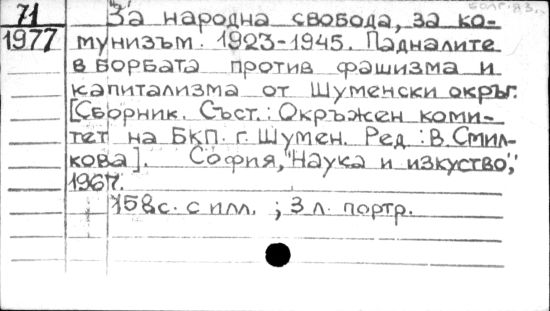 71
1977
"За народна свобода, за ко-
мунизъм. 1923-1945. Падналите
в борбата против фашизма и
капитализма от Шуменски окръг.
[Сборник. Съст.: Окръжен коми-
тет на БКП. г. Шумен. Ред.: В. Смил-
кова]. София, "Наука и изкуство",
1967.
158 с. с илл. ; 3 л. портр.